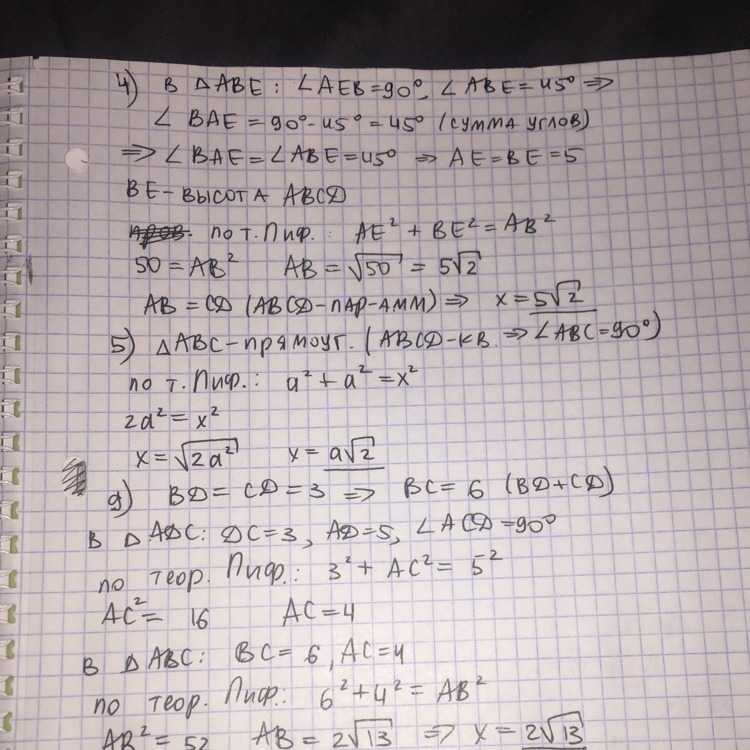 4) В △ABE : ∠AEB=90°, ∠ABE=45° ⇒
∠ BAE = 90°-45° = 45° (СУММА УГЛОВ)
⇒ ∠BAE = ∠ABE = 45° ⇒ AE = BE = 5
BE - ВЫСОТА ABCD
ПО Т. ПИФ. : AE² + BE² = AB²
50 = AB² AB = √50 = 5√2
AB = CD (ABCD - ПАР-АММ) ⇒ x = 5√2
5) △ABC - ПРЯМОУГ. (ABCD - КВ. ⇒ ∠ABC = 90°)
ПО Т. ПИФ. : a² + a² = x²
2a² = x²
x = √2a² x = a√2
9) BD = CD = 3 ⇒ BC = 6 (BD + CD)
В △ADC: DC = 3, AD = 5, ∠ACD = 90°
по теор. Пиф. : 3² + AC² = 5²
AC² = 16 AC = 4
В △ABC: BC = 6, AC = 4
по теор. Пиф. : 6² + 4² = AB²
AB² = 52 AB = 2√13 ⇒ x = 2√13